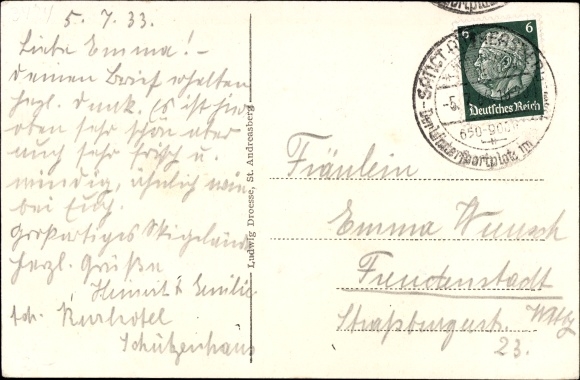 5. 7. 33.
Liebe Emma! –
deinen Brief erhalten
herzl. Dank. Es ist hier
oben sehr schön aber
auch sehr frisch u.
windig, ähnlich wie
bei Euch.
Großartiges Skigelände
Herzl. Grüße
Heinrich & Emilie
Kurhotel
Schützenhaus
Ludwig Droesse, St. Andreasberg
6
Deutsches Reich
SANCT ANDREASBERG
-5.
650-900m
Der Wintersportplatz im
Fräulein
Emma Wunsch
Freudenstadt
Straßburgerst. Wttbg
23.